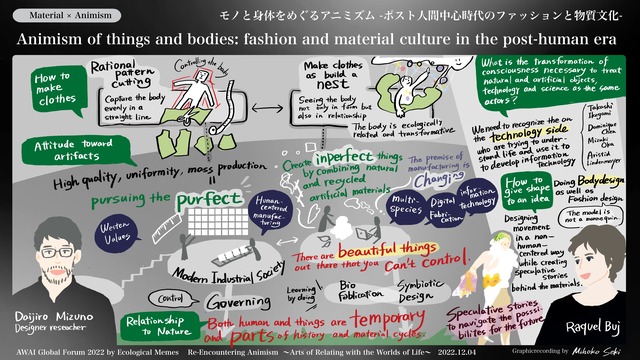 Material × Animism
モノと身体をめぐるアニミズム -ポスト人間中心時代のファッションと物質文化-
Animism of things and bodies: fashion and material culture in the post-human era
How to
make
clothes
Rational
pattern
cutting
Capture the body
evenly in a
straight line
Controlling the body
Make clothes
as build a
nest
Seeing the body
not only in form but
also in relationship
The body is ecologically
related and transformative
What is the transformation of
consciousness necessary to treat
natural and artificial objects,
technology and science as the same
actors?
We need to recognize the on
the technology side
who are trying to under-
stand life and use it to
develop information
Technology
Takashi
Ikegami
Dominique
Chen
Mizuki
Oka
Aristid
Lindenmayer
Attitude toward
artifacts
High quality, uniformity, mass production
=
pursuing the purfect
Create inperfect things
by combining natural
and recycled
artificial materials
The premise of
manufacturing is
Changing
Multi-
species
Digital
Fabri-
cation
Information
Technology
Human-
centered
manufac-
turing
Western
Values
How to
give shape
to an idea
Doing Bodydesign
as well as
Fashion design
The model is
not a mannequin.
Designing
movement
in a non-
human-
centered way
while creating
speculative
stories
behind the materials.
There are beautiful things
out there that you can't control.
Modern Industrial Society
Control
Governing
Learning
by doing
Bio
Fabrication
Symbiotic
Design
Relationship
to Nature
Both human and things are temporary
and parts of history and material cycles.
Speculative Stories
to navigate the possi-
bilities for the future
Doijiro Mizuno
Designer reseucher
Raquel Buj
AWAI Global Forum 2022 by Ecological Memes Re-Encountering Animism 〜Arts of Relating with the Worlds of Life〜 2022.12.04
Graphicrecording by Mihoko Seki